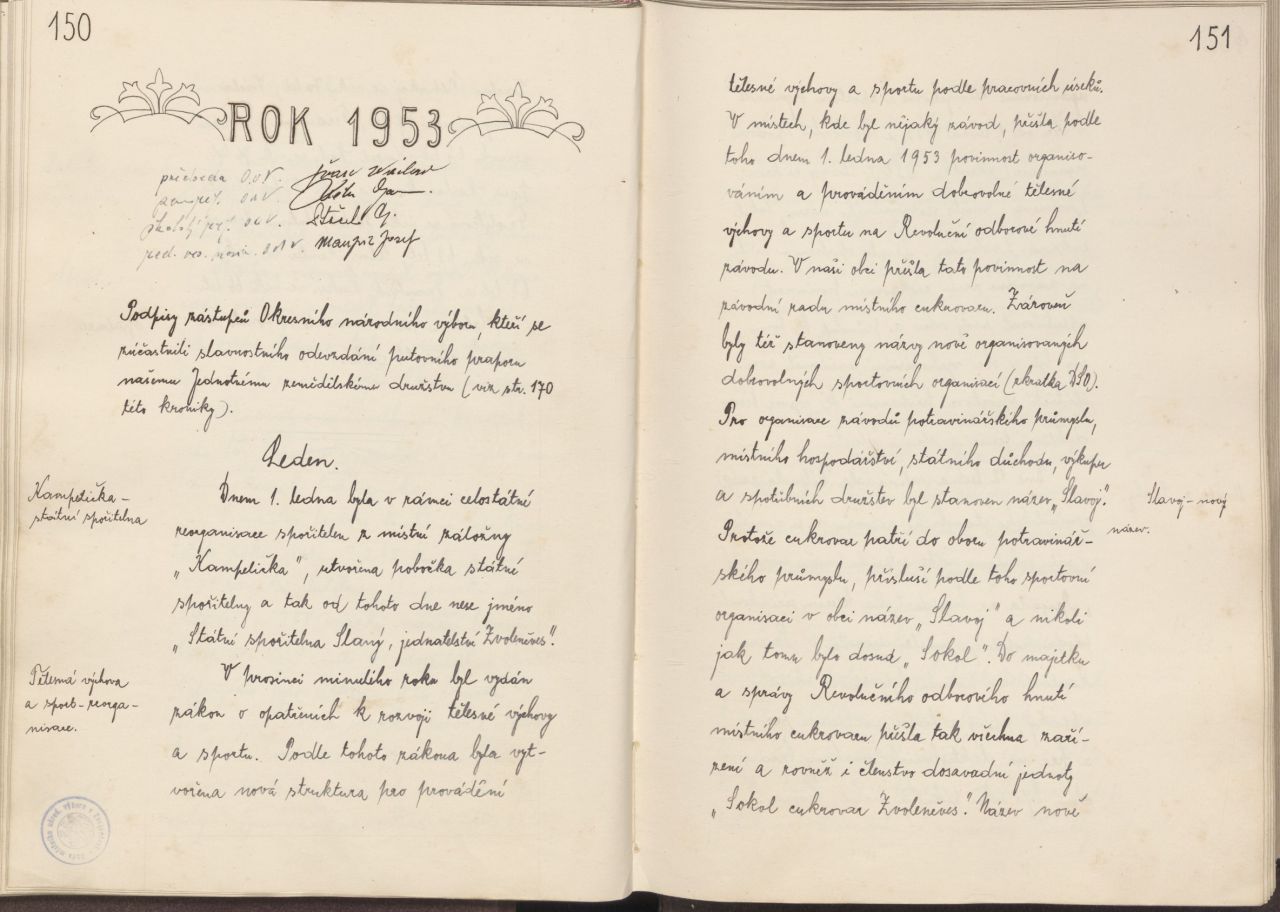 150
ROK 1953
předseda O.N.V.
školský ref. O.N.V.
Josef
Podpisy zástupců Okresního národního výboru, kteří se
zúčastnili slavnostního odevzdání putovního praporu
našemu Jednotnému zemědělskému družstvu (viz str. 170
této kroniky).
Leden.
Kampelička -
státní spořitelna
Dnem 1. ledna byla v rámci celostátní
reorganisace spořitelen z místní záložny
„Kampelička", utvořena pobočka státní
spořitelny a tak od tohoto dne nese jméno
„Státní spořitelna Slaný, jednatelství Zvoleněves".
Tělesná výchova
a sport - reorga-
nisace.
V prosinci minulého roku byl vydán
zákon o opatřeních k rozvoji tělesné výchovy
a sportu. Podle tohoto zákona byla vyt-
vořena nová struktura pro provádění
151
tělesné výchovy a sportu podle pracovních úseků.
V místech, kde byl nějaký závod, přešla podle
toho dnem 1. ledna 1953 povinnost organiso-
váním a prováděním dobrovolné tělesné
výchovy a sportu na Revoluční odborové hnutí
závodu. V naší obci přešla tato povinnost na
závodní radu místního cukrovaru. Zároveň
byly též stanoveny názvy nově organisovaných
dobrovolných sportovních organisací (zkratka DSO).
Pro organisace závodů potravinářského průmyslu,
místního hospodářství, státního důchodu, výkupu
a spotřebních družstev byl stanoven název „Slavoj".
Slavoj - nový
název.
Protože cukrovar patří do oboru potravinář-
ského průmyslu, přísluší podle toho sportovní
organisaci v obci název „Slavoj" a nikoli
jak tomu bylo dosud „Sokol". Do majetku
a správy Revolučního odborového hnutí
místního cukrovaru přešla tak všechna zaří-
zení a rovněž i členstvo dosavadní jednoty
„Sokol cukrovar Zvoleněves". Název nově